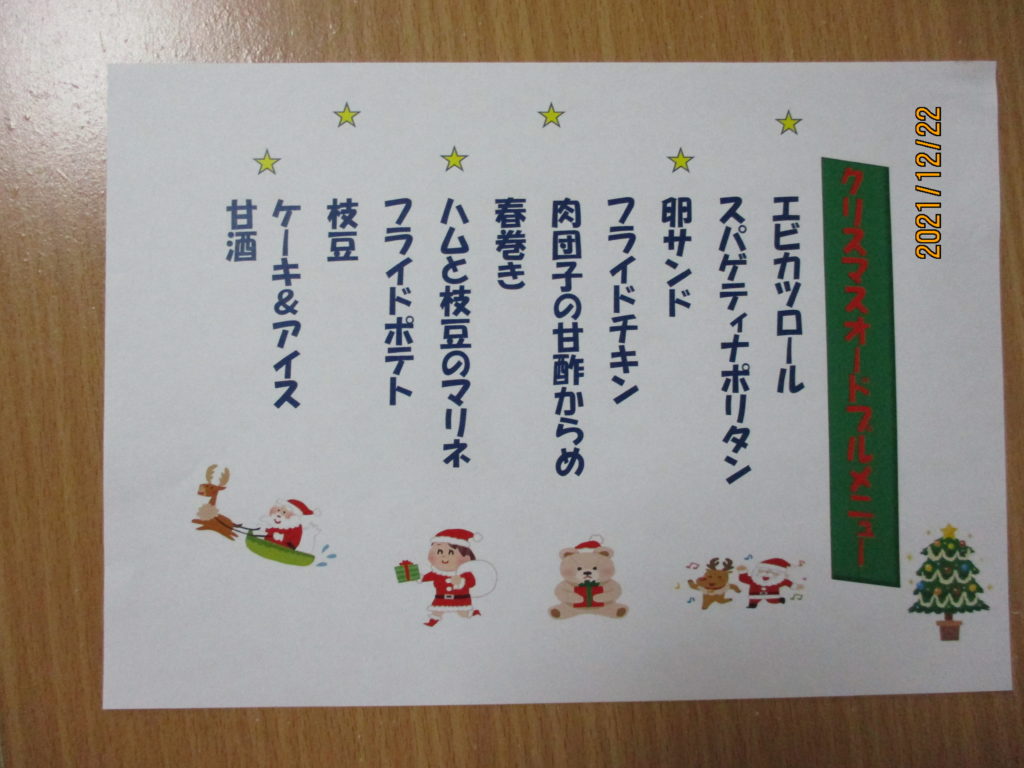 クリスマスオードブルメニュー
エビカツロール
スパゲティナポリタン
卵サンド
フライドチキン
肉団子の甘酢からめ
春巻き
ハムと枝豆のマリネ
フライドポテト
枝豆
ケーキ＆アイス
甘酒
2021/12/22